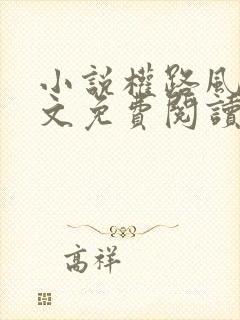 小說權路風
文免費閱讀
高祥